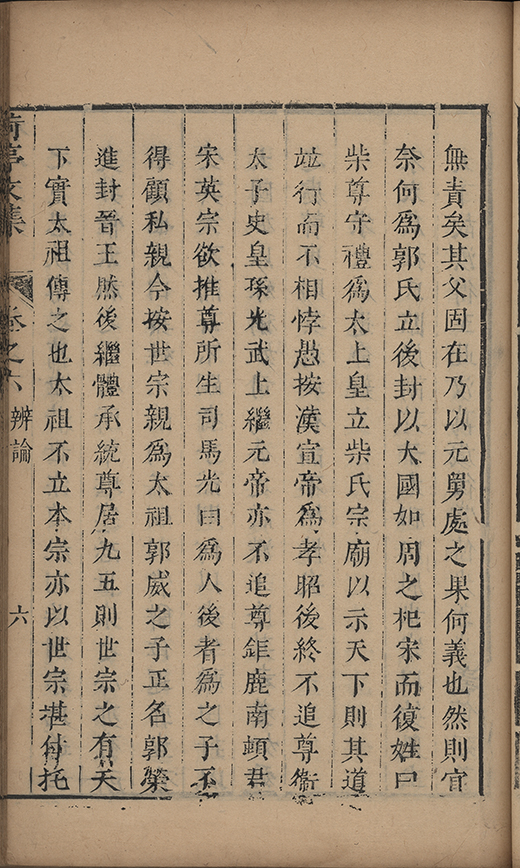 無責矣其父固在乃以元舅處之果何義也然則宜
奈何爲郭氏立後封以大國如周之杞宋而復姓曰
柴尊守禮爲太上皇立柴氏宗廟以示天下則其道
竝行而不相悖愚按漢宣帝爲孝昭後終不追尊衛
太子史皇孫光武上繼元帝亦不追尊鉅鹿南頓君
宋英宗欲推尊所生司馬光曰爲人後者爲之子不
得顧私親今按世宗親爲太祖郭威之子正名郭榮
進封晉王然後繼體承統尊居九五則世宗之有天
下實太祖傳之也太祖不立本宗亦以世宗堪付托
荷亭文集
卷之六 辨論
六